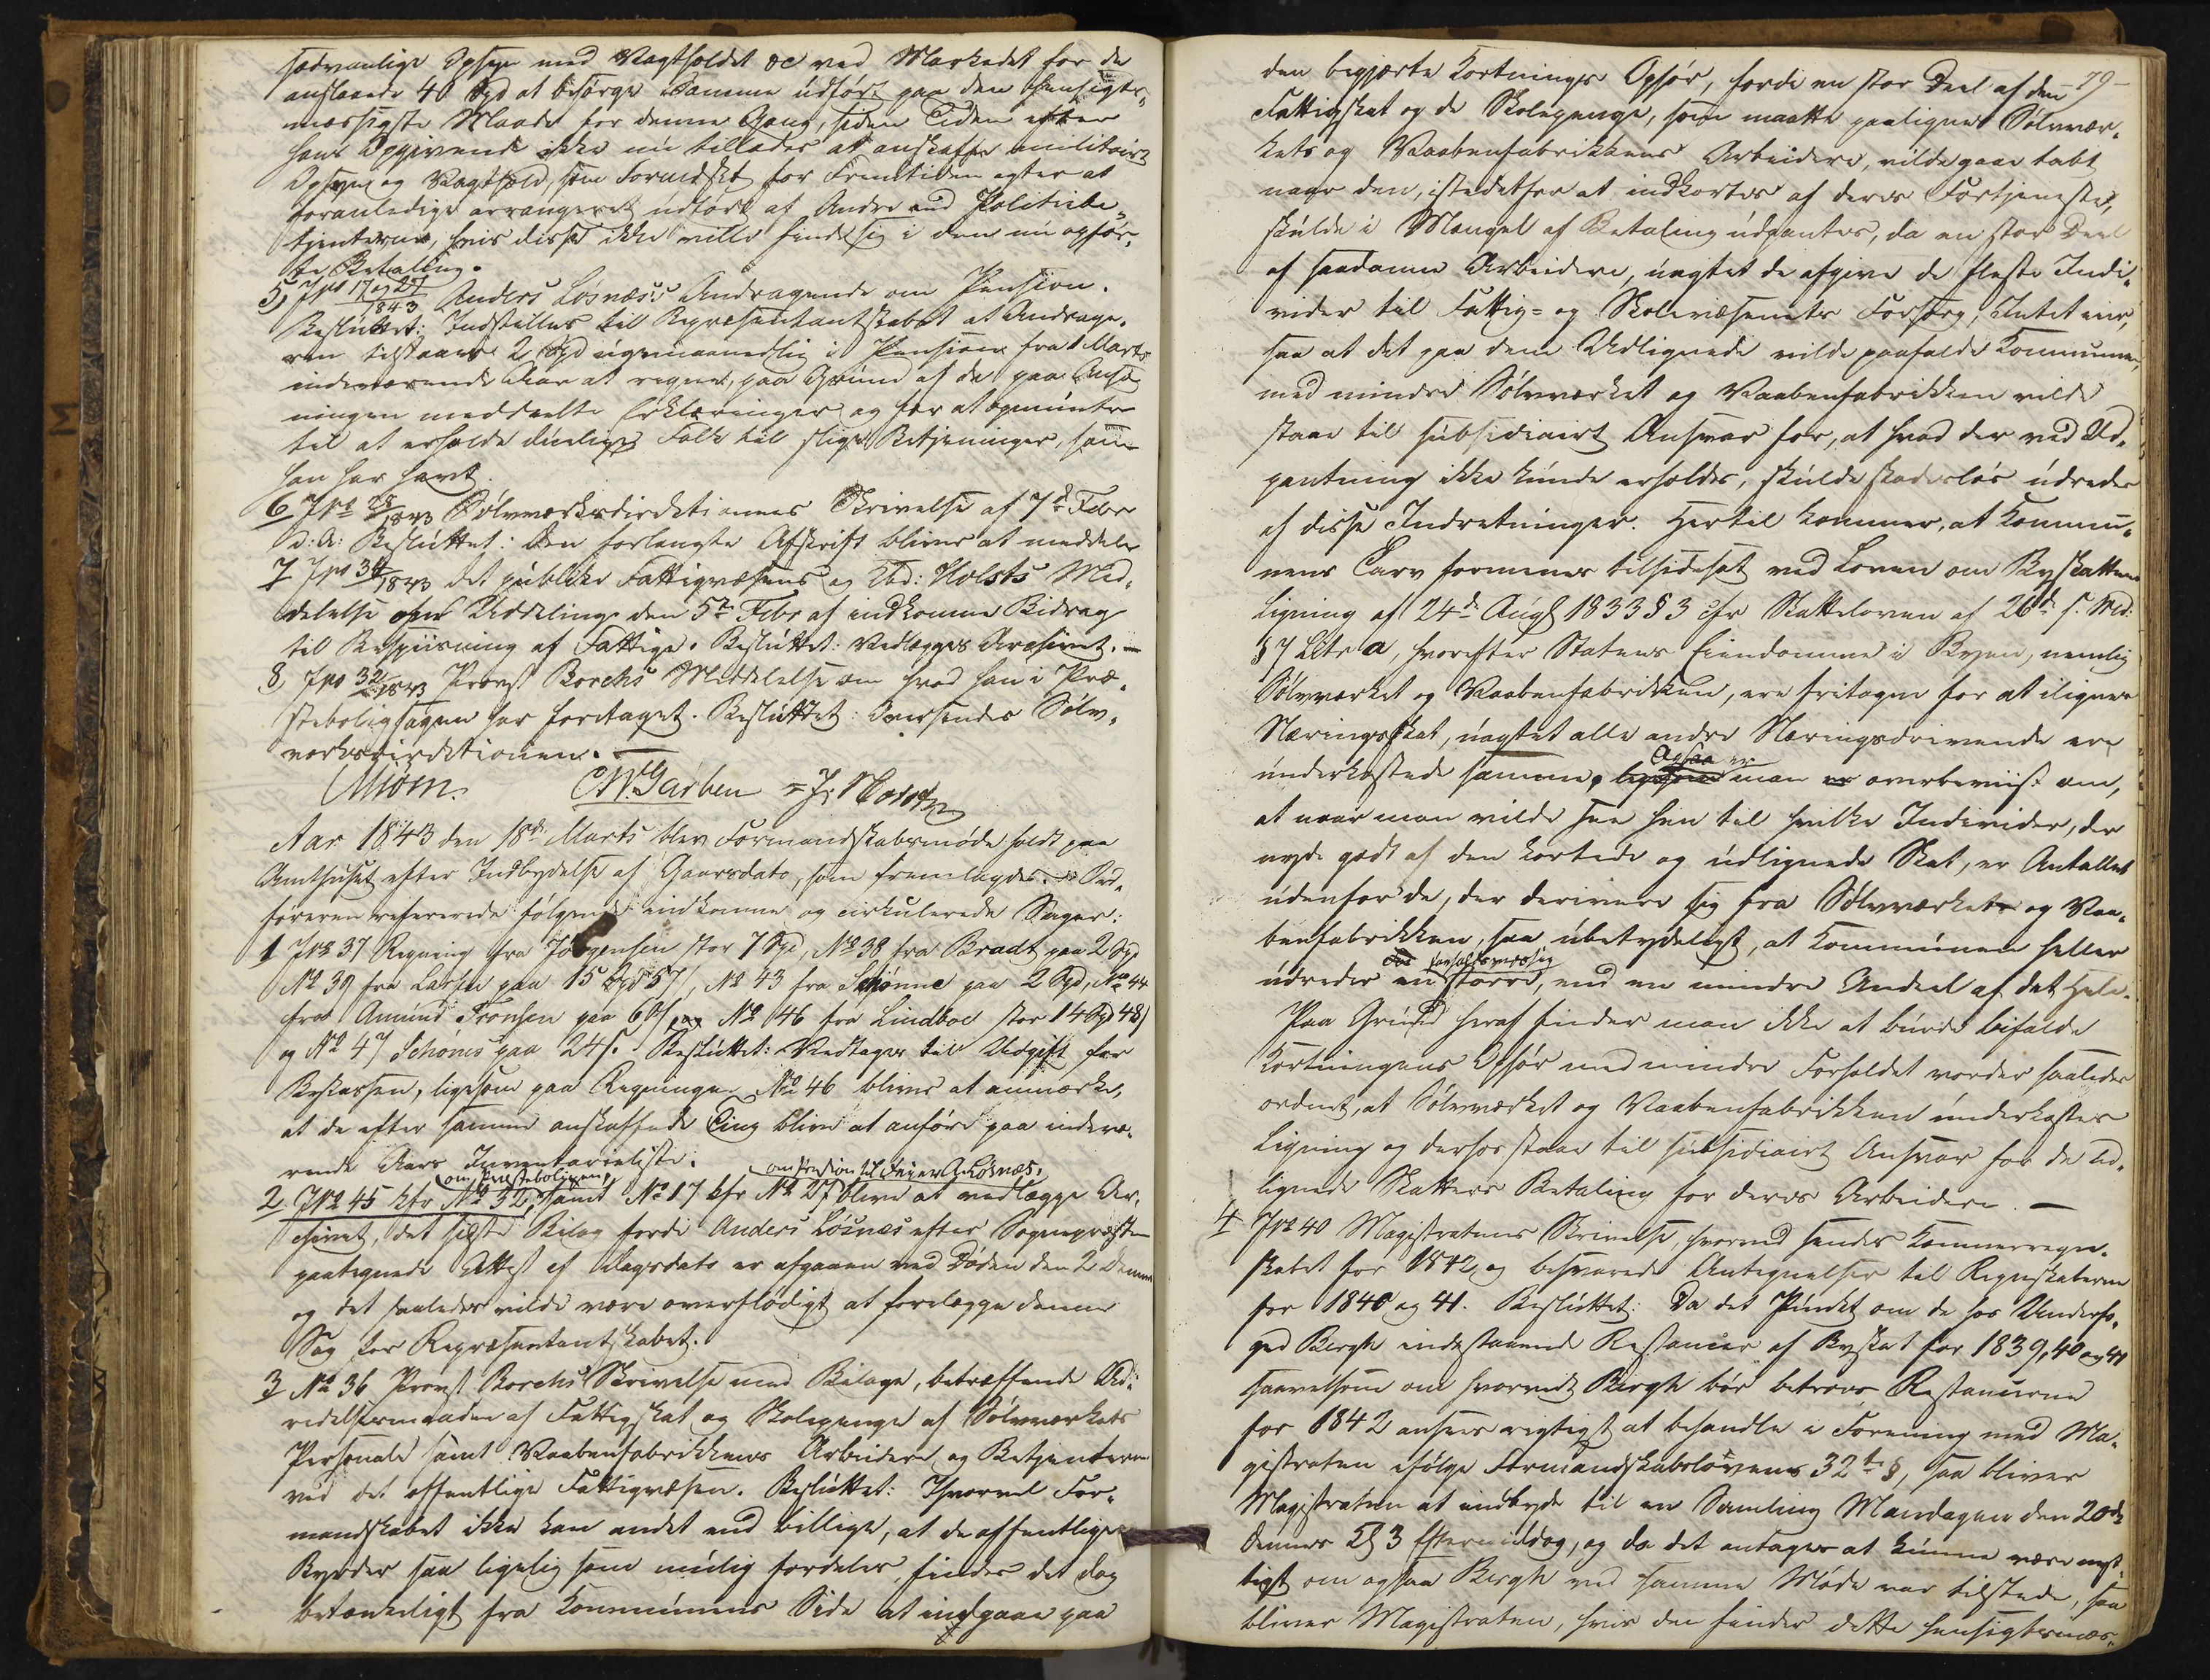 sædvanlige Opsyn med Vagtholdet &c ved Markedet for de
anslaaede 40 Spd at besørge Samme udført paa den hensigts-
mæssigste Maade for denne Gang, siden Tiden efter
hans Opgivende ikke nu tillader at anskaffe militairt
Opsyn og Vagthold, som Formdskbt for Fremtiden agter at
foranledige arrangeret udført af Andre end Politiebe-
tjenterne, hvis disse ikke ville finde sig i den nu ophør-
te Betaling.
5, Jno 17 og 27/1843 Anders Løsnæs's Andragende om Pension.
Besluttet: Indstilles til Repræsentantskabet at Andrage-
ren tilstaaes 2 Spd ugemaanedlig i Pension fra 1 Marts
indeværende Aar at regne, paa Grund af de paa Ansø-
ningen meddeelte Erklæringer og for at opmuntre
til at erholde duelige Folk til slige Betjeninger, som
han har havt.
6 Jno 28/1843 Sølvværksdirektionens Skrivelse af 7de Febr
d: A: Besluttet: Den forlangte Afskrift bliver at meddele
7 Jno 34/1843 det publike Fattigvæsens og Ebd: Holsts Med-
delelse over Uddeling den 5te Febr af indkomne Bidrag
til Bespiisning af Fattige. Besluttet: Vedlægges Archivet. —
8, Jno 32/1843 Provst Borchs Meddelelse om hvad han i Præ-
steboligsagen har foretaget. Besluttet: Oversendes Sølv-
værksdirektionen. —
CMGarben = J:
Aar 1843 den 18de Marts blev Formandskabsmøde holdt paa
Amthuset efter Indbydelse af Gaarsdato, som fremlagdes. Ord-
føreren refererede følgende indkomne og cirkulerede Sager:
1 Jno 37 Regning fra Jørgensen stor 7 Spd, No 38 fra Bradt paa 2 Spd
No 39 fra Larsen paa 15 Spd 57/, No 43 fra Schønne paa 2 Spd, No 44
fra Amund Fronsen paa 60/ og No 46 fra Lindboe stor 14 Spd 48/
og No 47 Schønes paa 24/. Besluttet: Vedtages til Udgift for
Bykassen, ligesom paa Regningen No 46 bliver at anmærke,
at de efter samme anskaffede Ting blive at anføre paa indevæ-
rende Aars Inventarieliste.
om Præsteboligen, om Pension til Feier A. Løsnæs,
2 Jno 45 kfr No 32, samt No 17 kfr No 27 blive at vedlægge Ar-
chivet, det sidste Bilag fordi Anders Løsnæs efter Sognepræsten
paategnede Attest af Dagsdato er afgaaen ved Døden den 2 Dennes
og det saaledes vilde være overflødigt at forelægge denne
Sag for Repræsentantskabet.
3 No 36 Provst Borchs Skrivelse med Bilage, betræffende Ud-
redelsesmaaden af Fattigskat og Skolepenge af Sølvværkets
Personale samt Vaabenfabrikkens Arbeidere og Betjenterne
ved det offentlige Fattigvæsen. Besluttet: Ihvorvel For-
mandskabet ikke kan andet end billige, at de offentlige
Byrder saa ligelig som mulig fordeles, findes det dog
betænkeligt fra Kommunens Side at indgaae paa
79-
den begjærte Kortnings Ophør, fordi en stor Deel af den
Fattigskat og de Skolepenge, som maatte paalignes Sølvvær-
kets og Vaabenfabrikkens Arbeidere, vilde gaae tabt
naar den, istedetfor at indkortes af deres Fortjeneste,
skulde i Mangel af Betaling udpantes, da en stor Deel
af saadanne Arbeidere, uagtet de afgive de fleste Indi-
vider til Fattig- og Skolevæsenets Forsørg, Intet eier,
saa at det paa dem Udlignede vilde paafalde Kommunen,
med mindre Sølvværket og Vaabenfabrikken vilde
staae til subsidiairt Ansvar for, at hvad der ved Ud-
pantning ikke kunde erholdes, skulde skadesløs udredes
af disse Indretninger. Hertil kommer, at Kommu-
nens Tarv formenes tilsidesat ved Loven om Byskattens
Ligning af 24de Augt 1833 § 3 cfr Skatteloven af 26de s. Md:
§ 7 Litr a, hvorefter Statens Eiendomme i Byen, nemlig
Sølvværket og Vaabenfabrikken, ere fritagne for at ilignes
Næringsskat, uagtet alle andre Næringsdrivende ere
Ogsaa er
underkastede samme, ligesom man er overbeviist om,
at naar man vilde see hen til hvilke Individer, der
nyde godt af den kortede og udlignede Skat, er Antallet
udenfor de, der derivere sig fra Sølvværket og Vaa-
benfabrikken, saa ubetydeligt, at Kommunen heller
forholdsmæssig
udreder en større, end en mindre Andeel af det Hele.
Paa Grund heraf finder man ikke at burde bifalde
Kortningens Ophør med mindre Forholdet vorder saaledes
ordnet, at Sølvværket og Vaabenfabrikken underkastes
Ligning og derhos staae til subsidiairt Ansvar for de Ud-
lignede Skatters Betaling for deres Arbeidere. —
4 Jno 40 Magistratens Skrivelse, hvorved sendes Kæmnerregn-
skabet for 1842 og besvarede Antegnelser til Regnskaberne
for 1840 og 41. Besluttet: Da det Punkt om de hos Underfo-
ged Bergh indestaaende Restancer af Byskat for 1839, 40 og 41
saavelsom om hvorvidt Bergh bør betroes Restancerne
for 1842 ansees rigtigst at behandle i Forening med Ma-
gistraten ifølge Formandskabslovens 32te §, saa bliver
Magistraten at indbyde til en Samling Mandagen den 20de
dennes Kl 3 Eftermiddag, og da det antages at kunne være nyt-
tigt om ogsaa Bergh ved samme Møde var tilstede, saa
bliver Magistraten, hvis den finder dette hensigtsmæs-